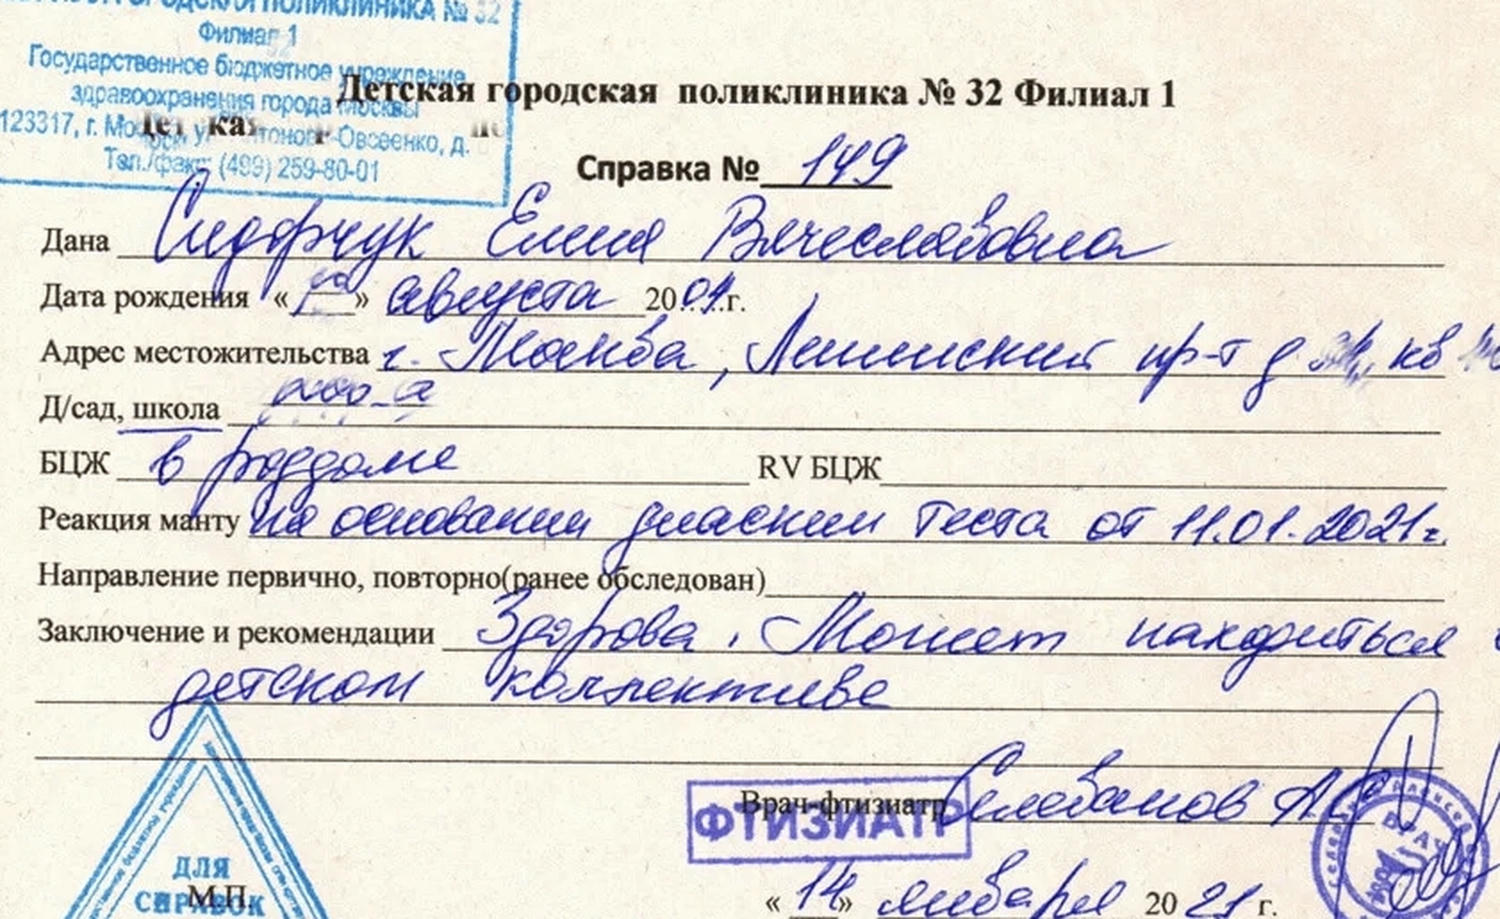 ГОРОДСКАЯ ПОЛИКЛИНИКА № 32
Филиал 1
Государственное бюджетное учреждение
здравоохранения города Москвы
123317, г. Москва, ул. Антонова-Овсеенко, д.
Тел./факс: (499) 259-80-01
Детская городская поликлиника № 32 Филиал 1
Справка № 149
Дана Сидорчук Елена Вячеславовна
Дата рождения « » августа 2004г.
Адрес местожительства г. Москва, Ленинский пр-т д кв
Д/сад, школа
БЦЖ в роддоме RV БЦЖ
Реакция манту на основании диаскин теста от 11.01.2021г.
Направление первично, повторно(ранее обследован)
Заключение и рекомендации Здорова. Может находиться
детском коллективе
Врач-фтизиатр Селованов А.С
ФТИЗИАТР
ВРАЧ
ДЛЯ
СПРАВОК
М.П.
« 14 » января 2021 г.